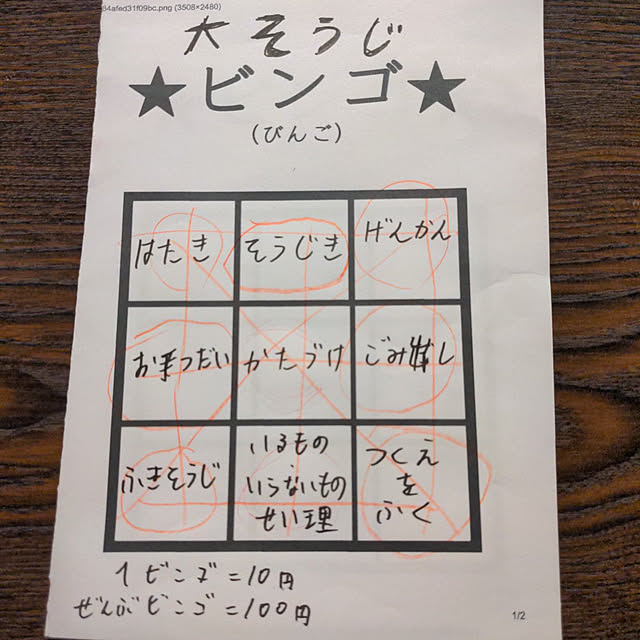 64afed31f09bc.png (3508×2480)
大そうじ
★ビンゴ★
(びんご)
はたき
そうじき
げんかん
お手つだい
かたづけ
ごみ出し
ふきそうじ
いるもの
いらないもの
せい理
つくえ
を
ふく
1ビンゴ=10円
ぜんぶビンゴ=100円
1/2